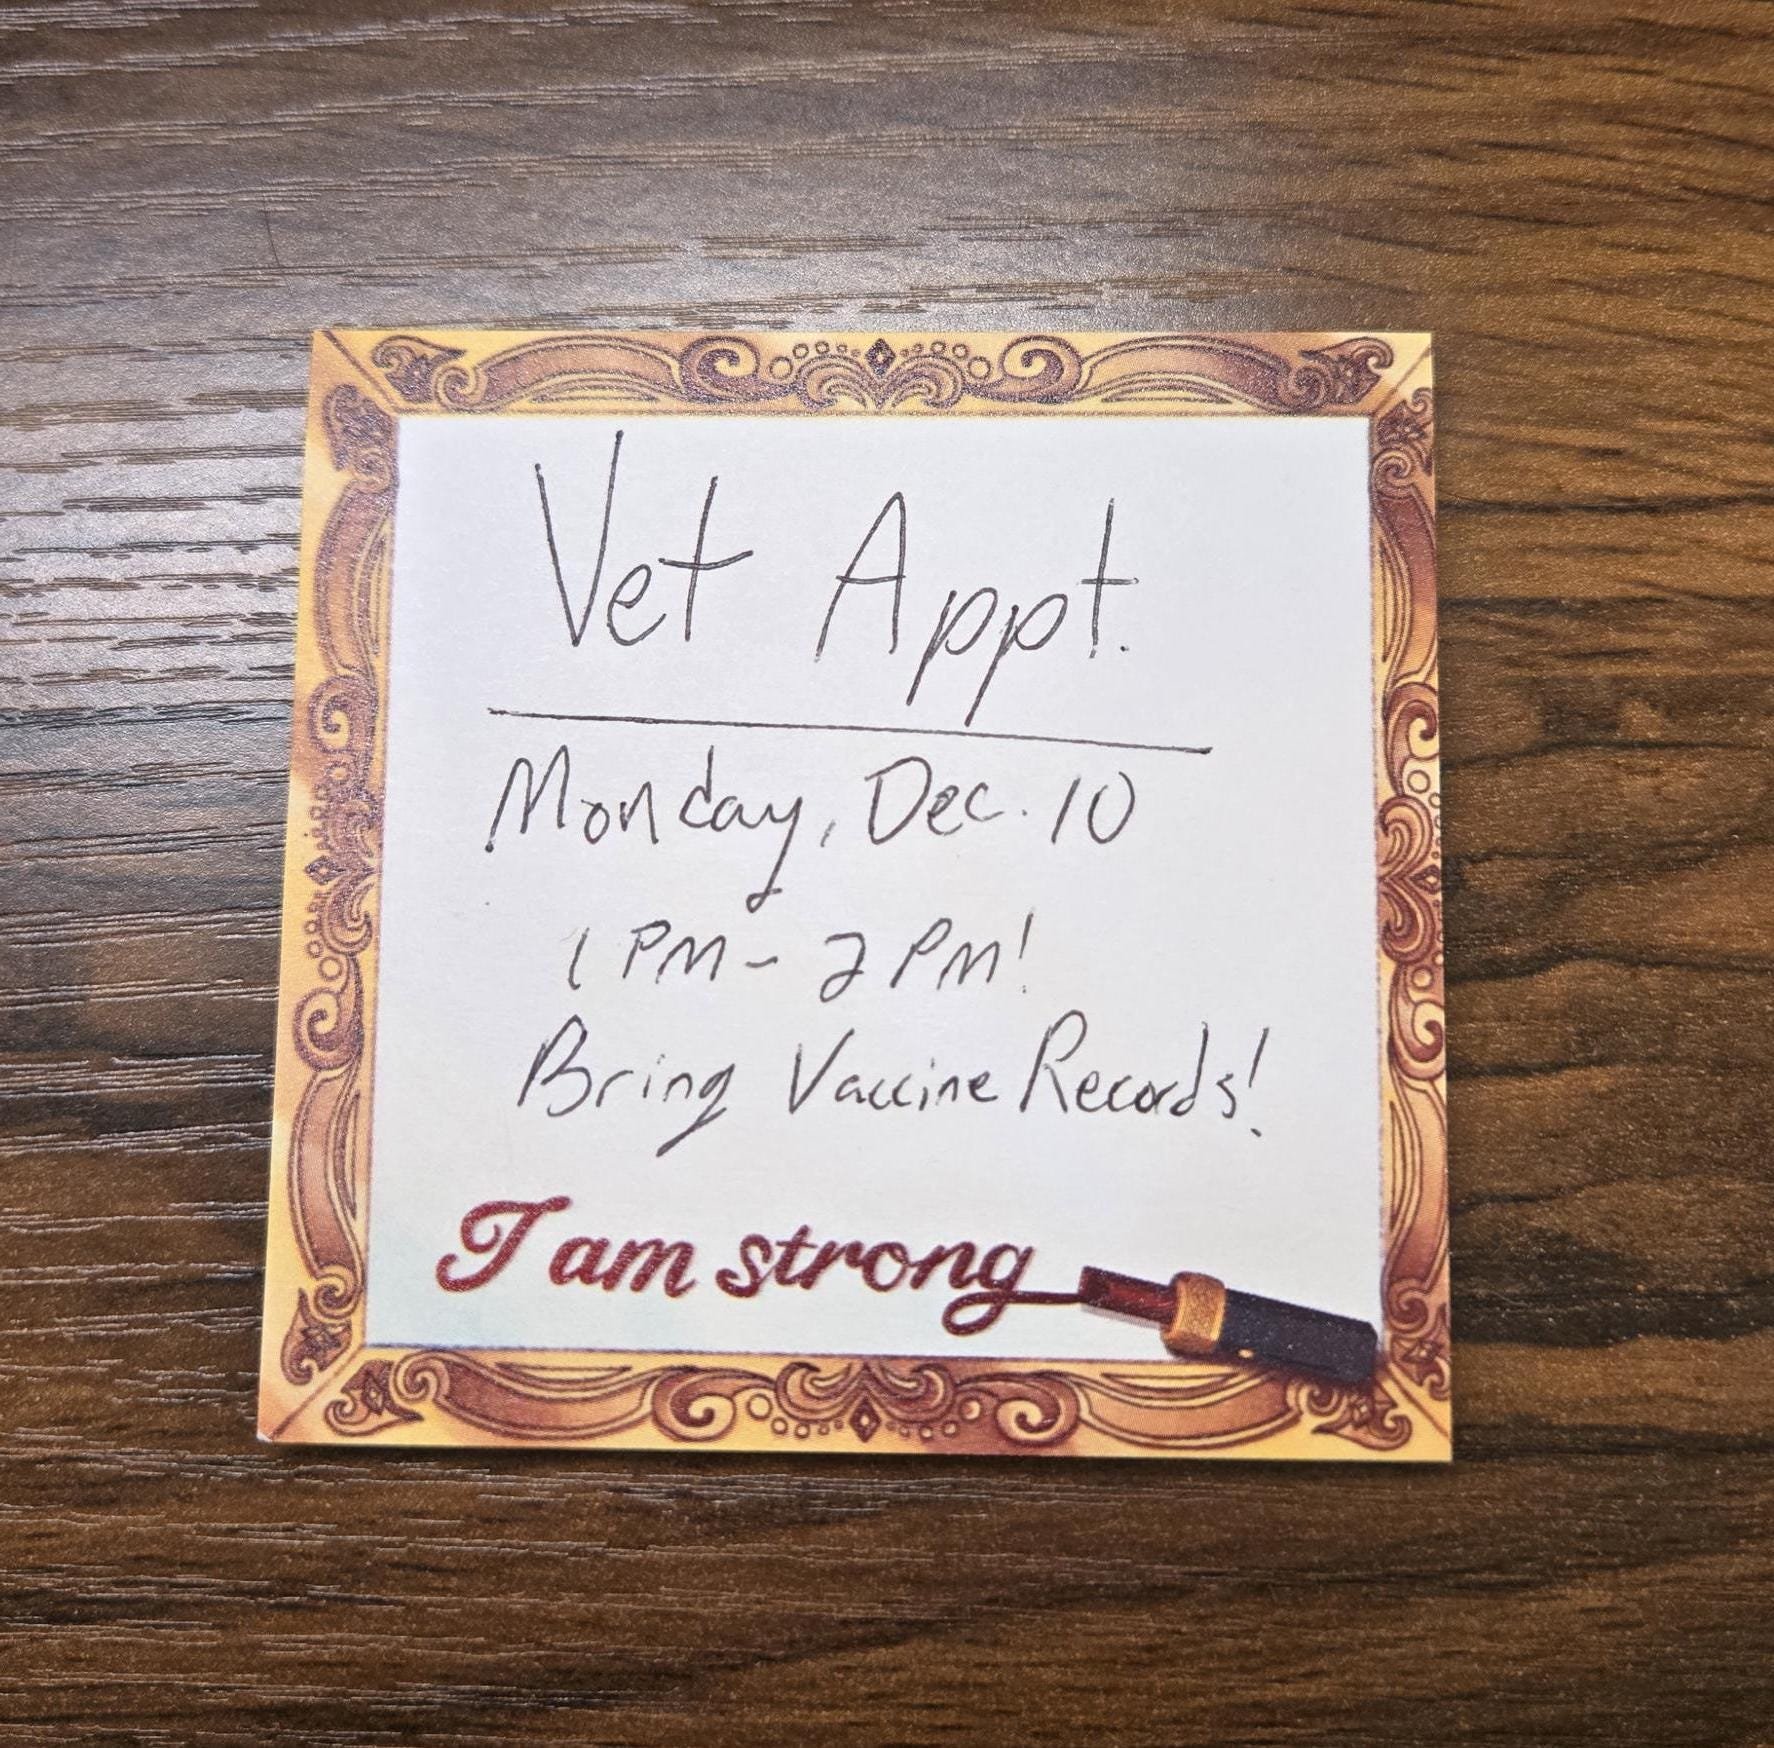 Vet Appt.
Monday, Dec. 10
1 PM - 2 PM!
Bring Vaccine Records!
I am strong